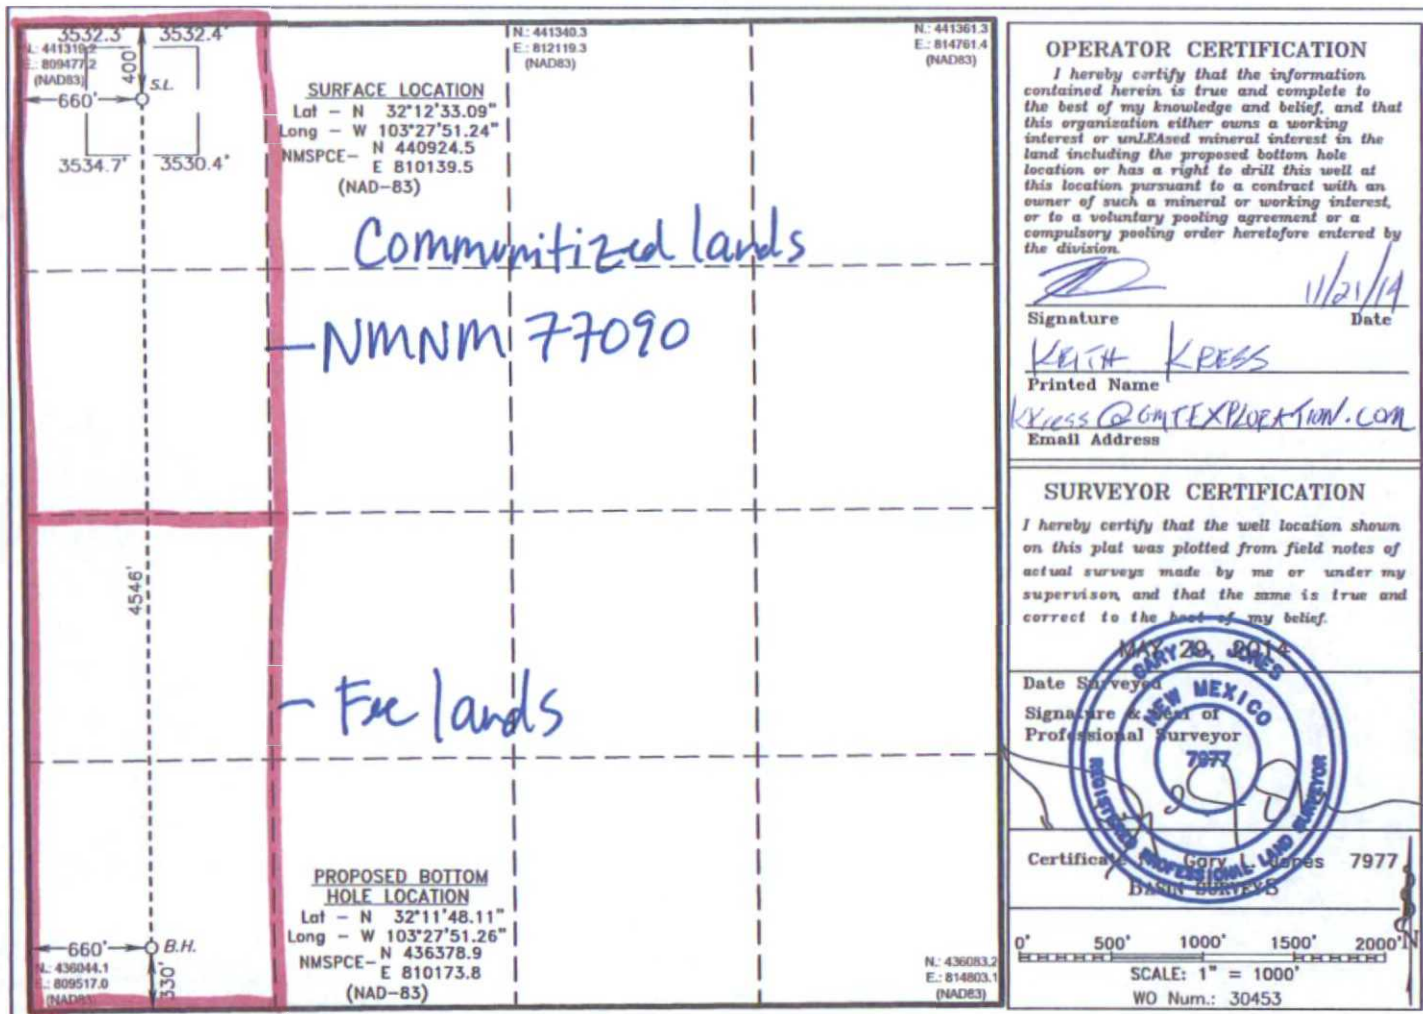 3532.3' 3532.4'
N.: 441319.2
E.: 809477.2
(NAD83)
400'
S.L.
660'
3534.7' 3530.4'
SURFACE LOCATION
Lat - N 32°12'33.09"
Long - W 103°27'51.24"
NMSPCE- N 440924.5
E 810139.5
(NAD-83)
N.: 441340.3
E.: 812119.3
(NAD83)
N.: 441361.3
E.: 814761.4
(NAD83)
Communitized lands
- NMNM 77090
4546'
- Fee lands
PROPOSED BOTTOM
HOLE LOCATION
Lat - N 32°11'48.11"
Long - W 103°27'51.26"
NMSPCE- N 436378.9
E 810173.8
(NAD-83)
660'
B.H.
N.: 436044.1
E.: 809517.0
(NAD83)
330'
N.: 436083.2
E.: 814803.1
(NAD83)
OPERATOR CERTIFICATION
I hereby certify that the information
contained herein is true and complete to
the best of my knowledge and belief, and that
this organization either owns a working
interest or unLEAsed mineral interest in the
land including the proposed bottom hole
location or has a right to drill this well at
this location pursuant to a contract with an
owner of such a mineral or working interest,
or to a voluntary pooling agreement or a
compulsory pooling order heretofore entered by
the division.
11/21/14
Signature Date
KEITH KRESS
Printed Name
kkress@GMTEXPLORATION.COM
Email Address
SURVEYOR CERTIFICATION
I hereby certify that the well location shown
on this plat was plotted from field notes of
actual surveys made by me or under my
supervison, and that the same is true and
correct to the best of my belief.
MAY 29, 2014
Date Surveyed
Signature & Seal of
Professional Surveyor
GARY L. JONES
NEW MEXICO
7977
REGISTERED PROFESSIONAL LAND SURVEYOR
Certificate Gary L. Jones 7977
BASIN SURVEYS
0' 500' 1000' 1500' 2000'
N
SCALE: 1" = 1000'
WO Num.: 30453